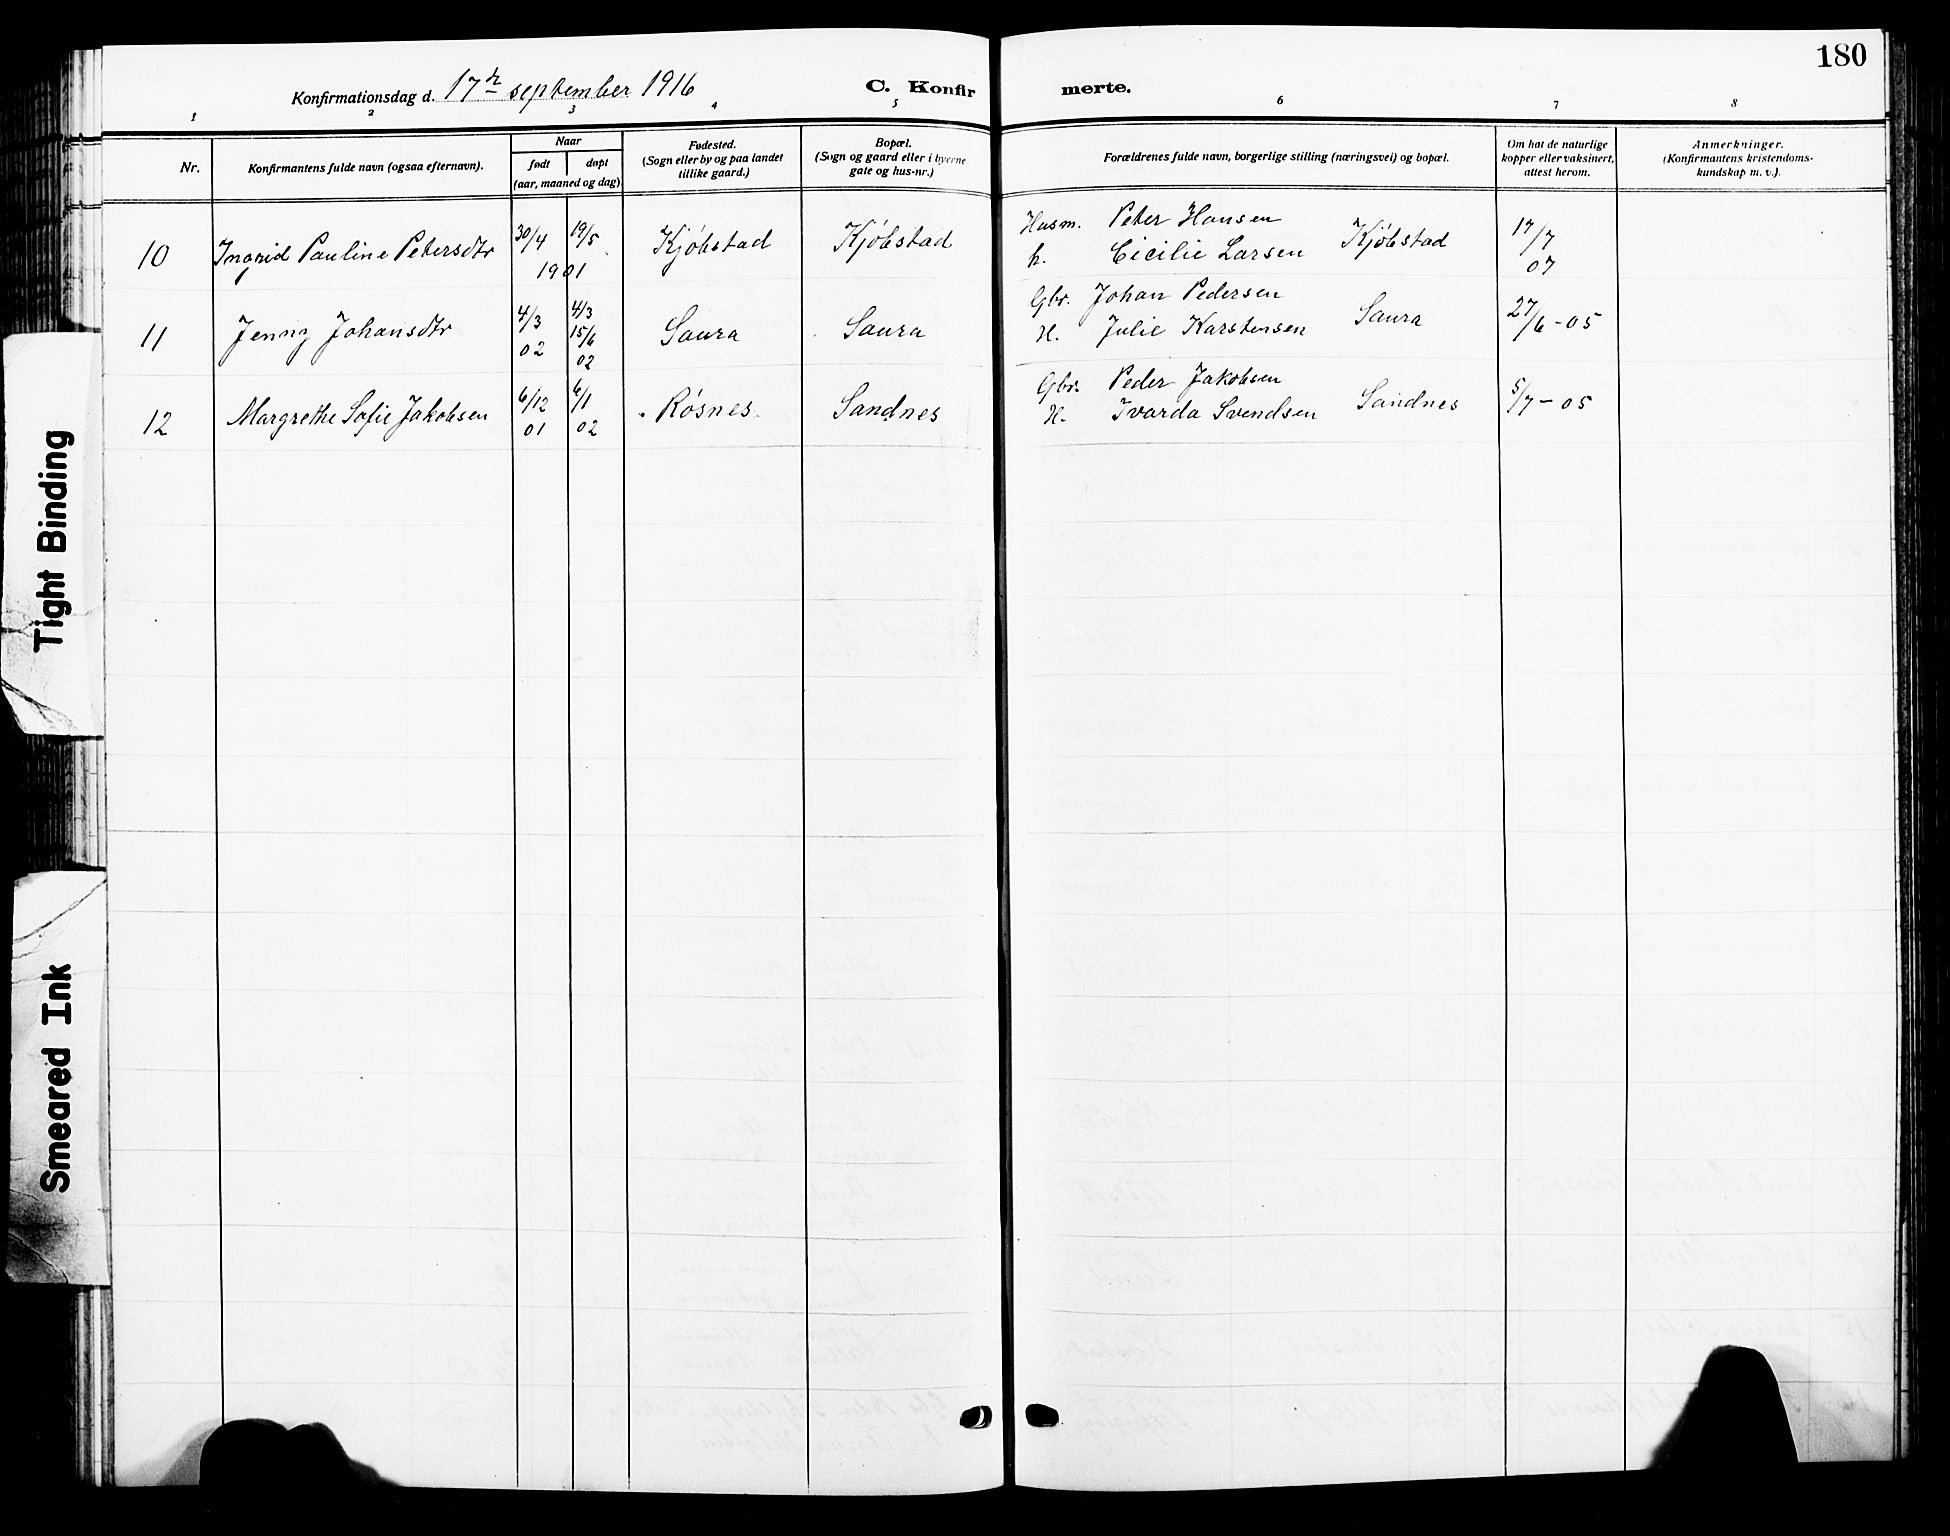 180
Konfirmationsdag d. 17de september 1916
C. Konfirmerte.
1 2 3 4 5 6 7 8
Nr.
Konfirmantens fulde navn (ogsaa efternavn).
Naar
født døpt
(aar, maaned og dag)
Fødested.
(Sogn eller by og paa landet
tillike gaard.)
Bopæl.
(Sogn og gaard eller i byerne
gate og hus-nr.)
Forældrenes fulde navn, borgerlige stilling (næringsvei) og bopæl.
Om hat de naturlige
kopper eller vaksinert,
attest herom.
Anmerkninger.
(Konfirmantens kristendoms-
kundskap m. v.).
10 Ingrid Pauline Petersdtr 30/4 19/5 1901 Kjøbstad Kjøbstad Husm. Peter Hansen
h. Cicilie Larsen Kjøbstad 17/7 07
11 Jenny Johansdtr 4/3 02 4/3 15/6 02 Saura Saura Gbr. Johan Pedersen
H. Julie Karstensen Saura 27/6 - 05
12 Margrethe Sofie Jakobsen 6/12 01 6/1 02 Røsnes Sandnes Gbr. Peder Jakobsen
H. Ivarda Svendsen Sandnes 5/7 - 05
Tight Binding
Smeared Ink